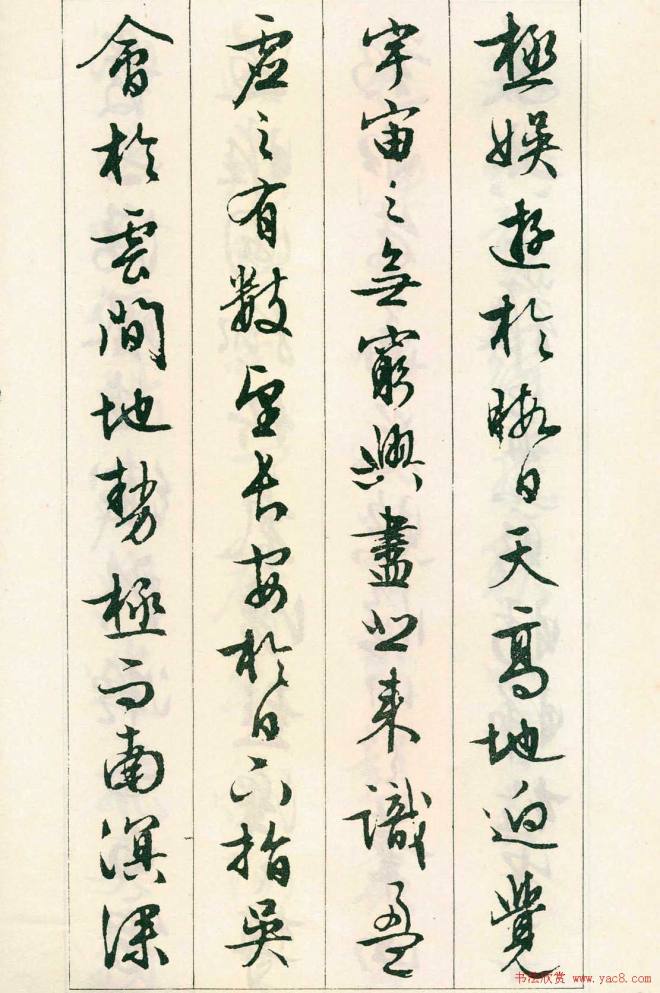 極娛遊於暇日天高地迥覺
宇宙之無窮興盡悲來識盈
虛之有數望長安於日下指吳
會於雲間地勢極而南溟深
书法欣赏 www.yac8.com